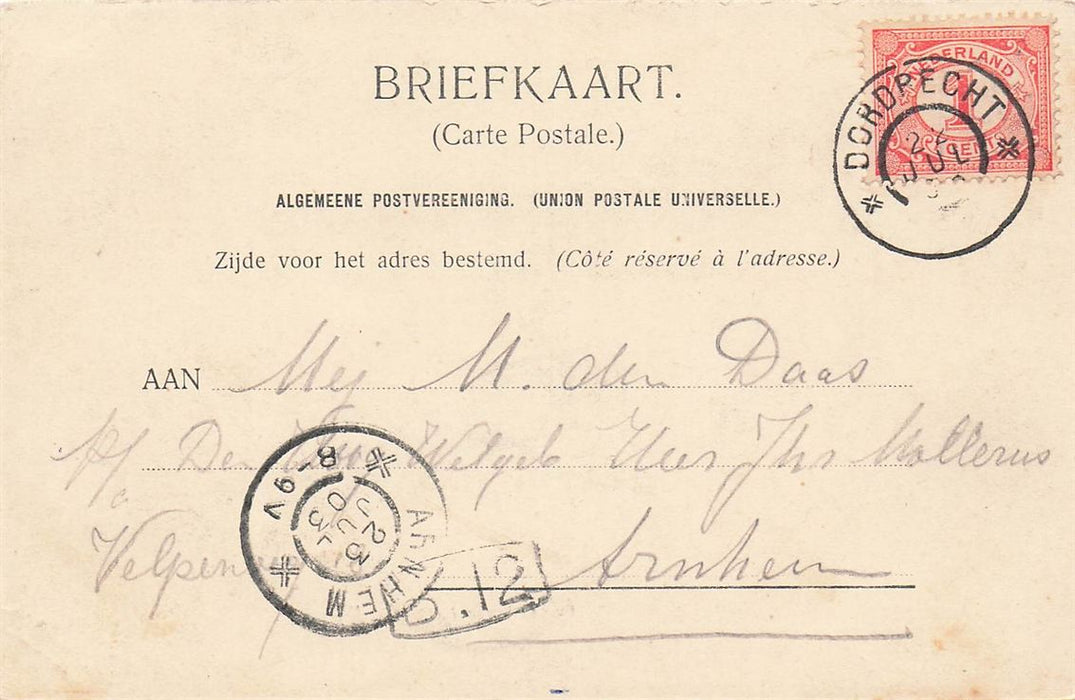 BRIEFKAART.
(Carte Postale.)
ALGEMEENE POSTVEREENIGING. (UNION POSTALE UNIVERSELLE.)
Zijde voor het adres bestemd. (Côté réservé à l'adresse.)
NEDERLAND
1
CENT
DORDRECHT
JUL
AAN Mej M. den Daas
Den Welgeb Heer Jhr Mollerus
Arnhem
ARNHEM
8-9V
23 JUL 03
.12